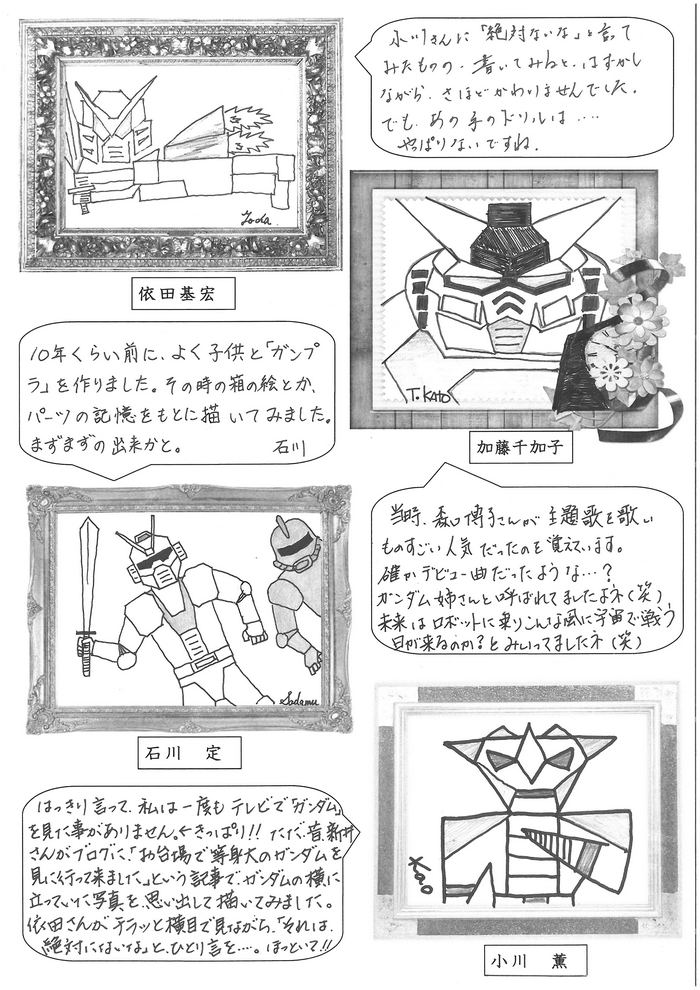 小川さんに「絶対ないな」と言って
みたものの、書いてみると、はずかし
ながら、さほどかわりませんでした。
でも、あの手のドリルは....
やっぱりないですね。
Yoda
依田基宏
T.KATO
加藤千加子
10年くらい前に、よく子供と「ガンプ
ラ」を作りました。その時の箱の絵とか、
パーツの記憶をもとに描いてみました。
まずまずの出来かと。 石川
Sadamu
石川 定
当時、森口博子さんが主題歌を歌い
ものすごい人気だったのを覚えています。
確かデビュー曲だったような...?
ガンダム姉さんと呼ばれてましたよネ(笑)
未来はロボットに乗りこんな風に宇宙で戦う
日が来るのか?とみいってましたネ(笑)
Kao
小川 薫
はっきり言って、私は一度もテレビで「ガンダム」
を見た事がありません。←きっぱり!!ただ、昔、新井
さんがブログに、「お台場で等身大のガンダムを
見に行って来ました。」という記事でガンダムの横に
立っていた写真を思い出して描いてみました。
依田さんがチラッと横目で見ながら、「それは、
絶対にないな」と、ひとり言を....。ほっといて!!